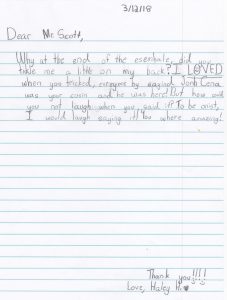 3/12/18
Dear Mr. Scott,
Why at the end of the did you
me a little on my back? I LOVED
when you tricked, everyone by saying John Cena
was your cusin and he was here! But how
you not laugh when you said it? To be
I would laugh saying it! You where amazing!
Thank you!!!!
Love, Haley H.